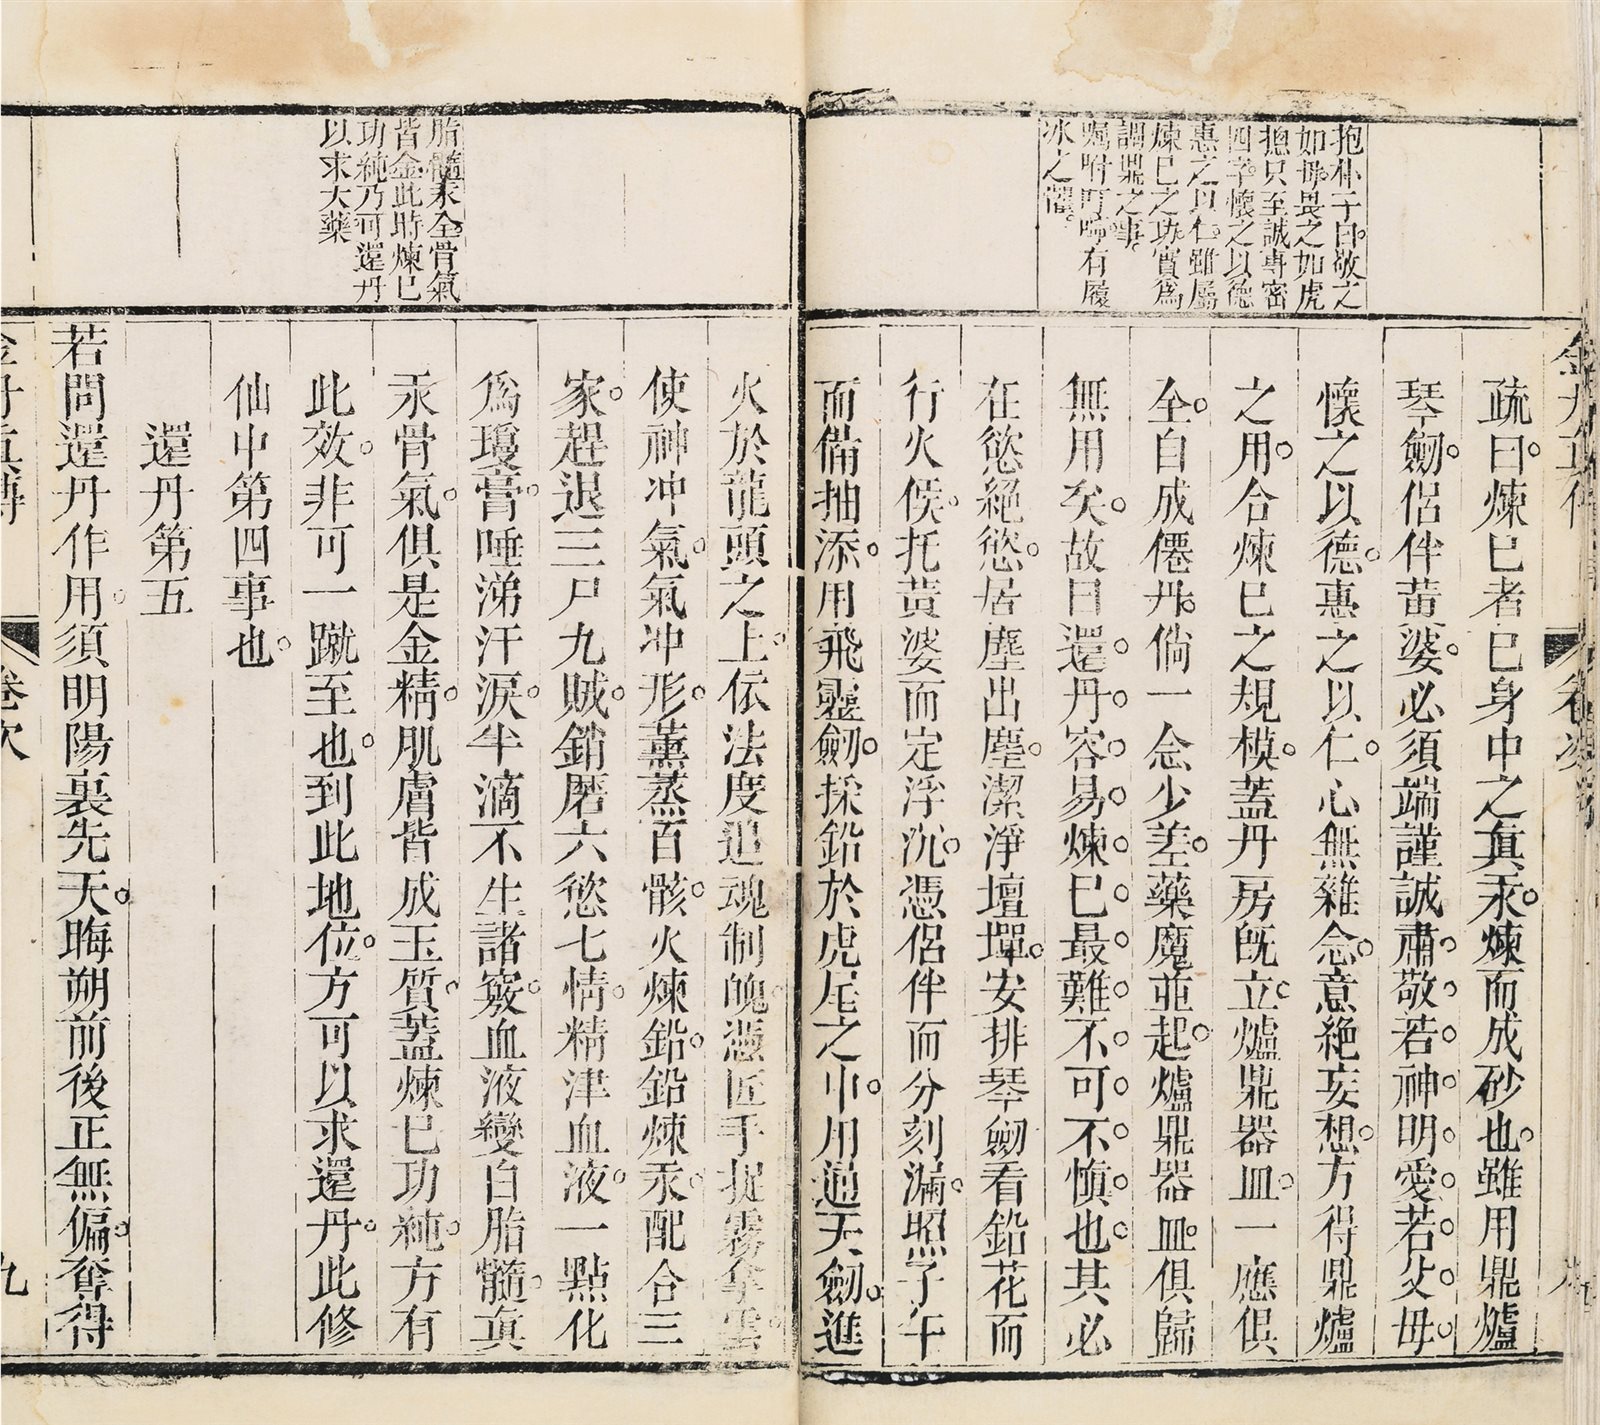 抱朴子曰敬之
如母畏之如虎
摠只至誠專密
四字懷之以德
惠之以仁雖屬
煉已之功實爲
調鼎之事
囑咐叮嚀有履
冰之懼
疏曰煉已者已身中之眞汞煉而成砂也雖用鼎爐
琴劒侶伴黃婆必須端謹誠肅敬若神明愛若父母
懷之以德惠之以仁心無雜念意絕妄想方得鼎爐
之用合煉已之規模蓋丹房旣立爐鼎器皿一應俱
全自成僊丹倘一念少差藥魔並起爐鼎器皿俱歸
無用矣故曰還丹容易煉已最難不可不慎也其必
在慾絕慾居塵出塵潔淨壇墠安排琴劒看鉛花而
行火候托黃婆而定浮沉憑侶伴而分刻漏照子午
而備抽添用飛靈劒採鉛於虎尾之中用通天劒進
火於龍頭之上依法度追魂制魄憑匠手捉霧拿雲
使神冲氣氣冲形薰蒸百骸火煉鉛鉛煉汞配合三
家趕退三尸九賊銷磨六慾七情精津血液一點化
爲瓊膏唾涕汗淚半滴不生諸竅血液變白脂髓眞
汞骨氣俱是金精肌膚皆成玉質蓋煉已功純方有
此效非可一蹴至也到此地位方可以求還丹此修
仙中第四事也
還丹第五
若問還丹作用須明陽裏先天晦朔前後正無偏奪得
脂髓汞全骨氣
皆金此時煉已
功純乃可還丹
以求大藥
金丹眞傳
卷次
九